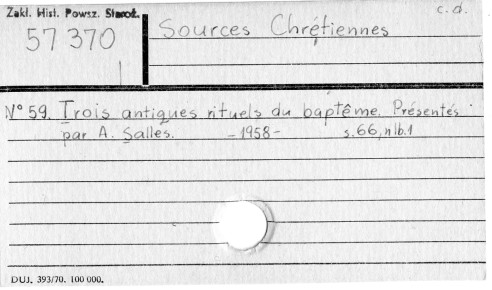 Zakł. Hist. Powsz. Staroż.
c.d.
57 370
Sources Chrétiennes
N° 59. Trois antiques rituels du baptême. Présentés
par A. Salles. -1958- s.66, nlb.1
DUJ. 393/70. 100 000.